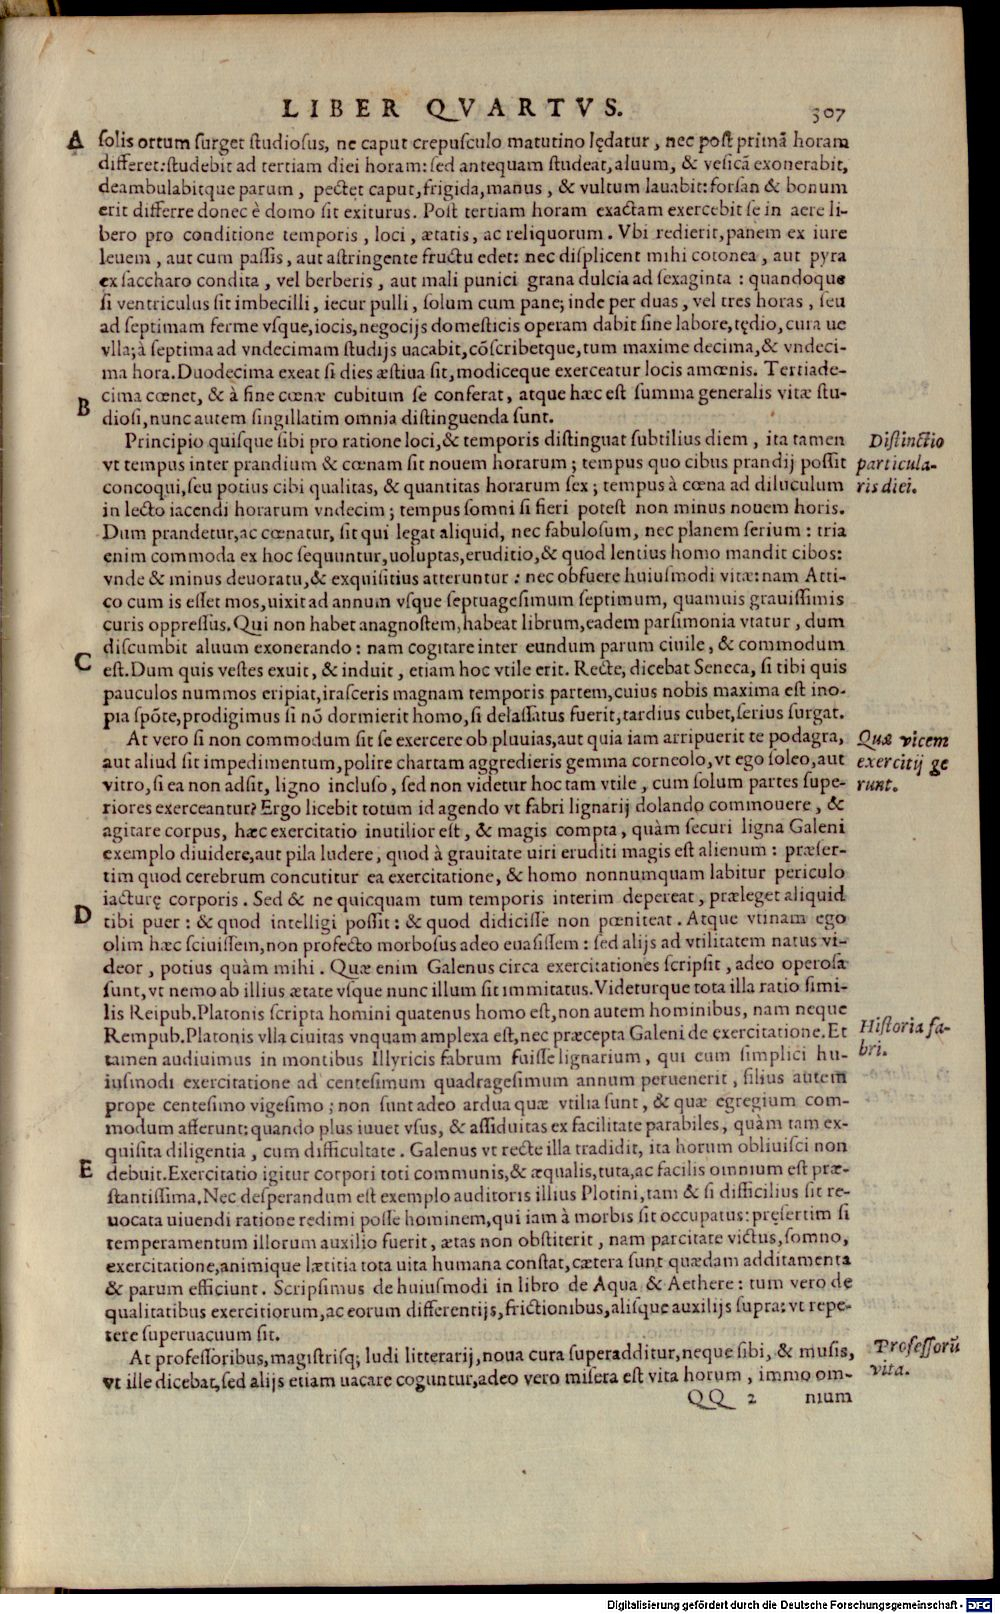 LIBER QVARTVS. 307
A solis ortum surget studiosus, ne caput crepusculo matutino lędatur, nec post primã horam
differet: studebit ad tertiam diei horam: sed antequam studeat, aluum, & vesicã exonerabit,
deambulabitque parum, pectet caput, frigida, manus, & vultum lauabit: forsan & bonum
erit differre donec è domo sit exiturus. Post tertiam horam exactam exercebit se in aere li-
bero pro conditione temporis, loci, ætatis, ac reliquorum. Vbi redierit, panem ex iure
leuem, aut cum passis, aut astringente fructu edet: nec displicent mihi cotonea, aut pyra
ex saccharo condita, vel berberis, aut mali punici grana dulcia ad sexaginta: quandoque
si ventriculus sit imbecilli, iecur pulli, solum cum pane; inde per duas, vel tres horas, seu
ad septimam ferme vsque, iocis, negocijs domesticis operam dabit sine labore, tędio, cura ue
vlla; à septima ad vndecimam studijs uacabit, cõscribetque, tum maxime decima, & vndeci-
ma hora. Duodecima exeat si dies æstiua sit, modiceque exerceatur locis amœnis. Tertiade-
cima cœnet, & à fine cœnæ cubitum se conferat, atque hæc est summa generalis vitæ stu-
B diosi, nunc autem singillatim omnia distinguenda sunt.
Principio quisque sibi pro ratione loci, & temporis distinguat subtilius diem, ita tamen
vt tempus inter prandium & cœnam sit nouem horarum; tempus quo cibus prandij possit
concoqui, seu potius cibi qualitas, & quantitas horarum sex; tempus à cœna ad diluculum
in lecto iacendi horarum vndecim; tempus somni si fieri potest non minus nouem horis.
Distinctio
particula-
ris diei.
Dum prandetur, ac cœnatur, sit qui legat aliquid, nec fabulosum, nec planem serium: tria
enim commoda ex hoc sequuntur, uoluptas, eruditio, & quod lentius homo mandit cibos:
vnde & minus deuoratu, & exquisitius atteruntur: nec obfuere huiusmodi vitæ: nam Atti-
co cum is esset mos, uixit ad annum vsque septuagesimum septimum, quamuis grauissimis
curis oppressus. Qui non habet anagnostem, habeat librum, eadem parsimonia vtatur, dum
discumbit aluum exonerando: nam cogitare inter eundum parum ciuile, & commodum
C est. Dum quis vestes exuit, & induit, etiam hoc vtile erit. Recte, dicebat Seneca, si tibi quis
pauculos nummos eripiat, irasceris magnam temporis partem, cuius nobis maxima est ino-
pia spõte, prodigimus si nõ dormierit homo, si delassatus fuerit, tardius cubet, serius surgat.
At vero si non commodum sit se exercere ob pluuias, aut quia iam arripuerit te podagra,
aut aliud sit impedimentum, polire chartam aggredieris gemma corneolo, vt ego soleo, aut
vitro, si ea non adsit, ligno incluso, sed non videtur hoc tam vtile, cum solum partes supe-
Quæ vicem
exercitij ge
runt.
riores exerceantur? Ergo licebit totum id agendo vt fabri lignarij dolando commouere, &
agitare corpus, hæc exercitatio inutilior est, & magis compta, quàm securi ligna Galeni
exemplo diuidere, aut pila ludere, quod à grauitate uiri eruditi magis est alienum: præser-
tim quod cerebrum concutitur ea exercitatione, & homo nonnumquam labitur periculo
iacturę corporis. Sed & ne quicquam tum temporis interim depereat, præleget aliquid
D tibi puer: & quod intelligi possit: & quod didicisse non pœniteat. Atque vtinam ego
olim hæc sciuissem, non profecto morbosus adeo euasissem: sed alijs ad vtilitatem natus vi-
deor, potius quàm mihi. Quæ enim Galenus circa exercitationes scripsit, adeo operosa
sunt, vt nemo ab illius ætate vsque nunc illum sit immitatus. Videturque tota illa ratio simi-
lis Reipub. Platonis scripta homini quatenus homo est, non autem hominibus, nam neque
Rempub. Platonis vlla ciuitas vnquam amplexa est, nec præcepta Galeni de exercitatione. Et
tamen audiuimus in montibus Illyricis fabrum fuisse lignarium, qui cum simplici hu-
Historia fa-
bri.
iusmodi exercitatione ad centesimum quadragesimum annum peruenerit, filius autem
prope centesimo vigesimo; non sunt adeo ardua quæ vtilia sunt, & quæ egregium com-
modum afferunt: quando plus iuuet vsus, & assiduitas ex facilitate parabiles, quàm tam ex-
quisita diligentia, cum difficultate. Galenus vt recte illa tradidit, ita horum obliuisci non
E debuit. Exercitatio igitur corpori toti communis, & æqualis, tuta, ac facilis omnium est præ-
stantissima. Nec desperandum est exemplo auditoris illius Plotini, tam & si difficilius sit re-
uocata uiuendi ratione redimi posse hominem, qui iam à morbis sit occupatus: pręsertim si
temperamentum illorum auxilio fuerit, ætas non obstiterit, nam parcitate victus, somno,
exercitatione, animique lætitia tota uita humana constat, cætera sunt quædam additamenta
& parum efficiunt. Scripsimus de huiusmodi in libro de Aqua & Aethere: tum vero de
qualitatibus exercitiorum, ac eorum differentijs, frictionibus, alisque auxilijs supra: vt repe-
tere superuacuum sit.
At professoribus, magistrisq; ludi litterarij, noua cura superadditur, neque sibi, & musis,
vt ille dicebat, sed alijs etiam uacare coguntur, adeo vero misera est vita horum, immo om-
Professorũ
vita.
QQ 2 nium
Digitalisierung gefördert durch die Deutsche Forschungsgemeinschaft - DFG